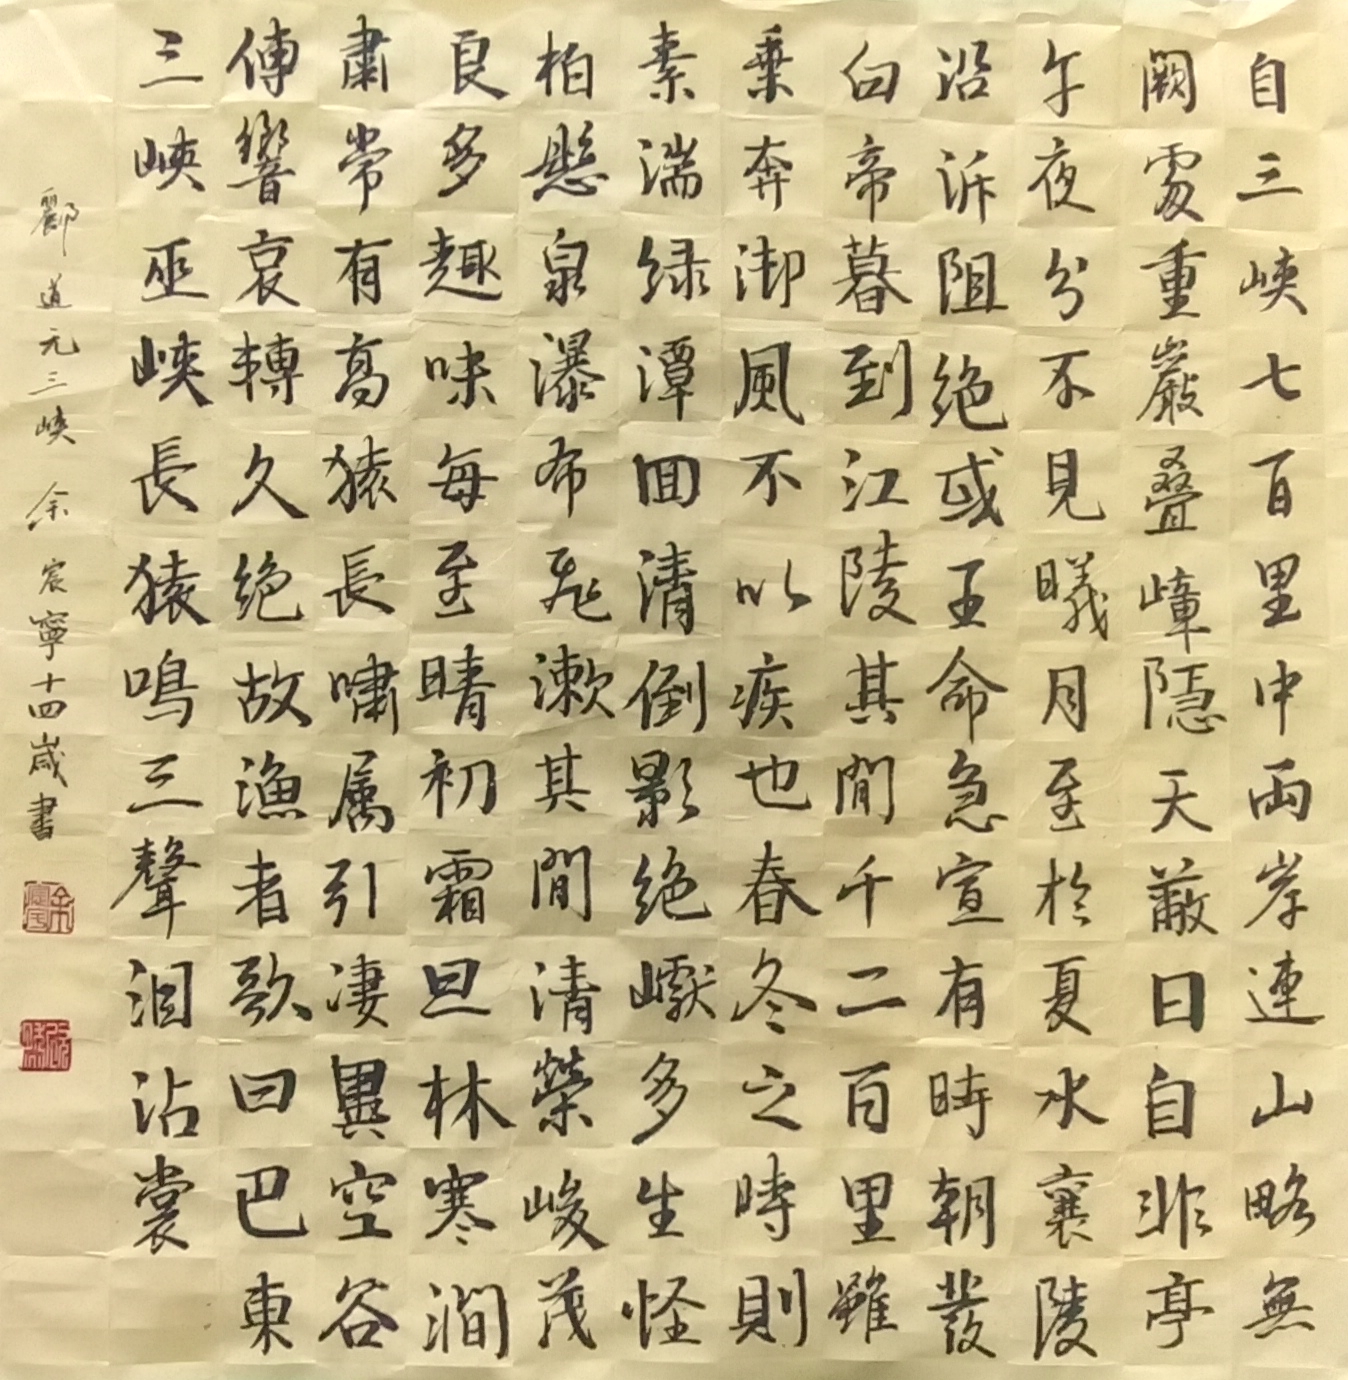 自三峽七百里中兩岸連山略無
闕處重巖叠嶂隱天蔽日自非亭
午夜分不見曦月至於夏水襄陵
沿泝阻絶或王命急宣有時朝發
白帝暮到江陵其間千二百里雖
乗奔御風不以疾也春冬之時則
素湍緑潭回清倒影絶巘多生怪
柏懸泉瀑布飛漱其間清榮峻茂
良多趣味每至晴初霜旦林寒澗
肅常有高猿長嘯屬引淒異空谷
傳響哀轉久絶故漁者歌曰巴東
三峽巫峽長猿鳴三聲淚沾裳
酈道元三峽 余宸寧十四歲書